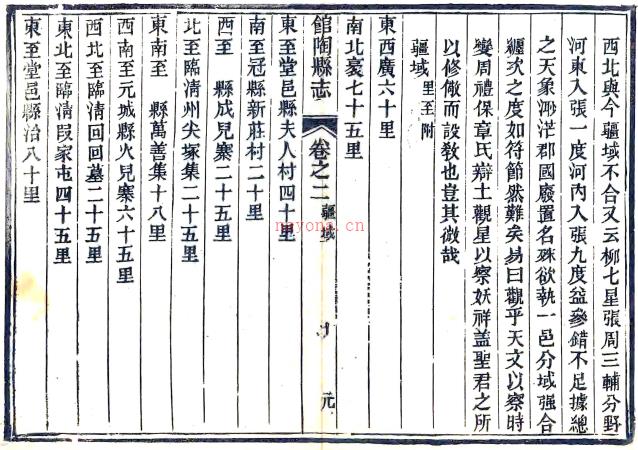 西北與今疆域不合又云柳七星張周三輔分野
河東入張一度河內入張九度益參錯不足據總
之天象渺茫郡國廢置名殊欲執一邑分域強合
纏次之度如符節然難矣易曰觀乎天文以察時
變周禮保章氏辯土觀星以察妖祥盖聖君之所
以修儆而設敎也豈其微哉
疆域 里至附
東西廣六十里
南北袤七十五里
館陶縣志 卷之二 疆域 元
東至堂邑縣夫人村四十里
南至冠縣新莊村二十里
西至 縣成兒寨二十五里
北至臨清州尖塚集二十五里
東南至 縣萬善集十八里
西南至元城縣火兒寨六十五里
西北至臨清回回墓二十五里
東北至臨清叚家屯四十五里
東至堂邑縣治八十里
nayona.cn